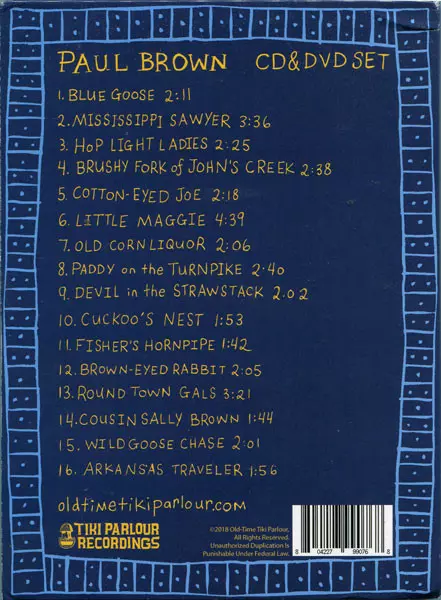 PAUL BROWN CD&DVD SET
1. BLUE GOOSE 2:11
2. MISSISSIPPI SAWYER 3:36
3. HOP LIGHT LADIES 2:25
4. BRUSHY FORK of JOHN'S CREEK 2:38
5. COTTON-EYED JOE 2:18
6. LITTLE MAGGIE 4:39
7. OLD CORN LIQUOR 2:06
8. PADDY on the TURNPIKE 2:40
9. DEVIL in the STRAWSTACK 2:02
10. CUCKOO'S NEST 1:53
11. FISHER'S HORNPIPE 1:42
12. BROWN-EYED RABBIT 2:05
13. ROUND TOWN GALS 3:21
14. COUSIN SALLY BROWN 1:44
15. WILD GOOSE CHASE 2:01
16. ARKANSAS TRAVELER 1:56
oldtimetikiparlour.com
TIKI PARLOUR
RECORDINGS
©2018 Old-Time Tiki Parlour,
All Rights Reserved.
Unauthorized Duplication Is
Punishable Under Federal Law.
8 04227 99076 8